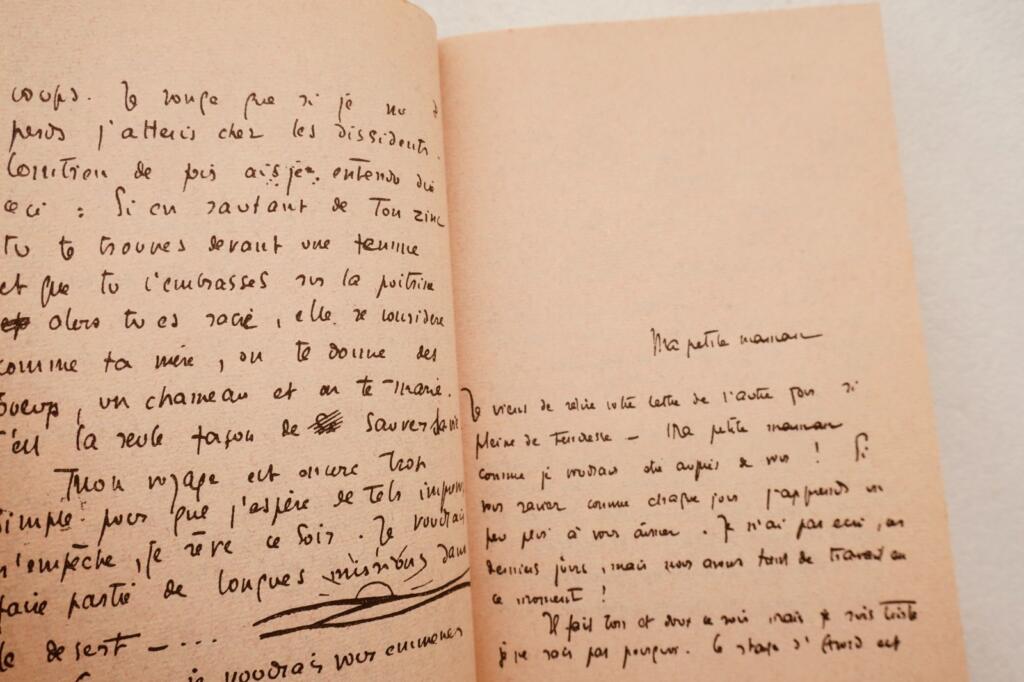 coups. Je songe que si je me
perds j'atteris chez les dissidents.
Condition de pis ais-je entendu dire
ceci : Si en sautant de Ton zinc
tu te trouves devant une femme
et que tu l'embrasses sur la poitrine
alors tu es sacré, elle te considère
comme ta mère, on te donne des
boeufs, un chameau et on te marie.
C'est la seule façon de sauver ta vie
Mon voyage est encore trop
simple pour que j'espère de tels imprévus
n'empêche, je rêve ce soir. Je voudrais
faire partie de longues missions dans
le desert - ....
je voudrais vous emmener
Ma petite maman
Je viens de relire votre lettre de l'autre jour si
pleine de tendresse - Ma petite maman
comme je voudrais être auprès de vous ! Si
vous saviez comme chaque jour j'apprends un
peu plus à vous aimer. Je n'ai pas écrit, ces
derniers jours, mais nous avons tant de travail en
ce moment !
Il fait bon et doux ce soir mais je suis triste
je ne sais pas pourquoi. Ce stage d' est